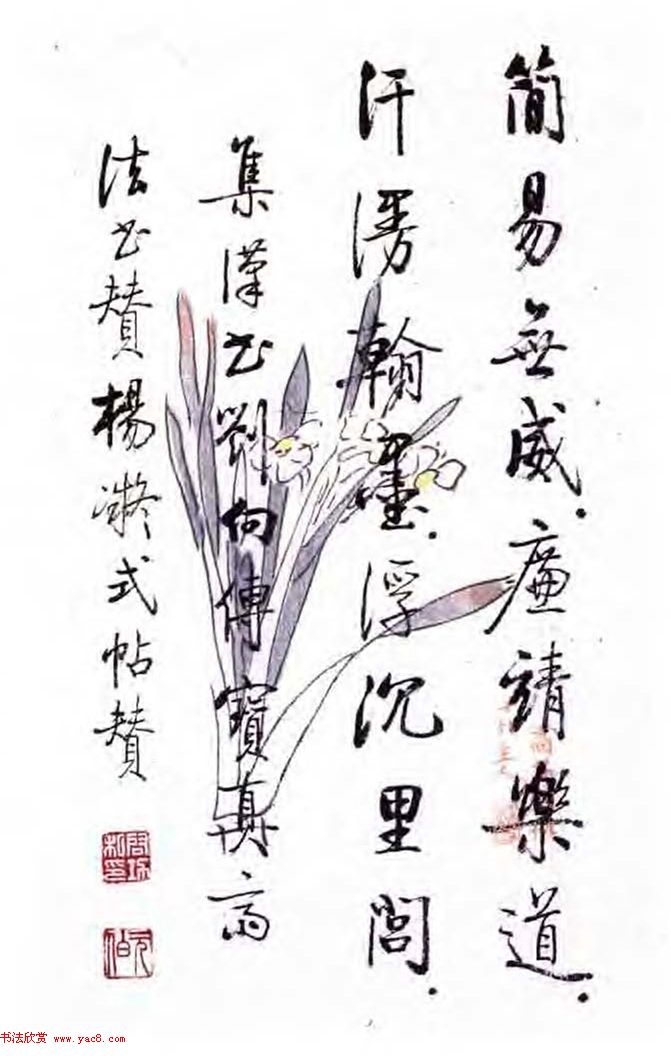 簡易無威廉靖樂道
汗漫翰墨浮沉里閭
集漢書劉向傳寶真齋
法書贊楊凝式帖贊
书法欣赏 www.yac8.com